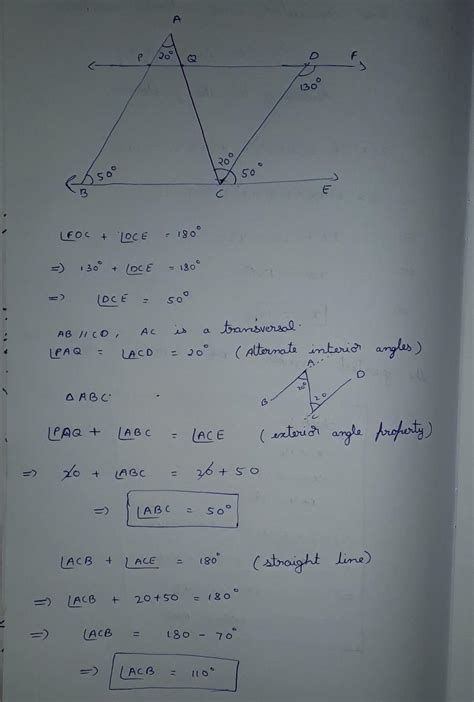 A
P 20° Q D F
130°
50° 20° 50°
B C E
∠FDC + ∠DCE = 180°
=> 130° + ∠DCE = 180°
=> ∠DCE = 50°
AB // CD, AC is a transversal.
∠PAQ = ∠ACD = 20° (Alternate interior angles)
A
D
20°
B
20
C
△ABC.
∠PAQ + ∠ABC = ∠ACE (exterior angle property)
=> 20 + ∠ABC = 20 + 50
=> ∠ABC = 50°
∠ACB + ∠ACE = 180° (straight line)
=> ∠ACB + 20+50 = 180°
=> ∠ACB = 180 - 70°
=> ∠ACB = 110°